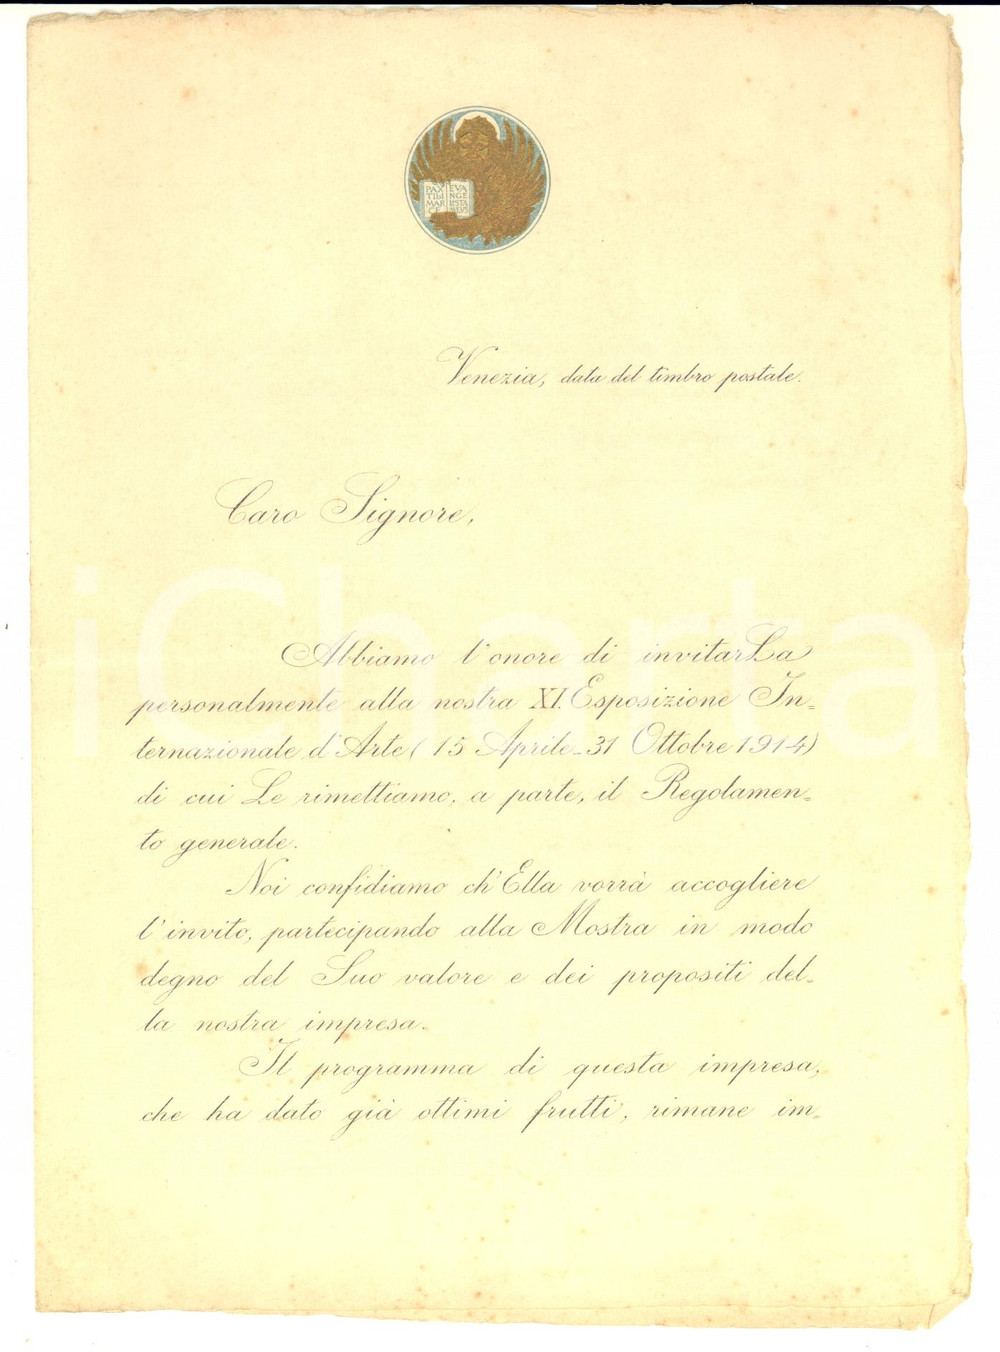 PAX EVA
TIBI NGE
MAR LISTA
CE MEVS
Venezia, data del timbro postale.
Caro Signore,
iCharta
Abbiamo l'onore di invitarLa
personalmente alla nostra XI. Esposizione In=
ternazionale d'Arte (15 Aprile-31 Ottobre 1914)
di cui Le rimettiamo, a parte, il Regolamen=
to generale.
Noi confidiamo ch'Ella vorrà accogliere
l'invito, partecipando alla Mostra in modo
degno del Suo valore e dei propositi del=
la nostra impresa.
Il programma di questa impresa,
che ha dato già ottimi frutti, rimane im=